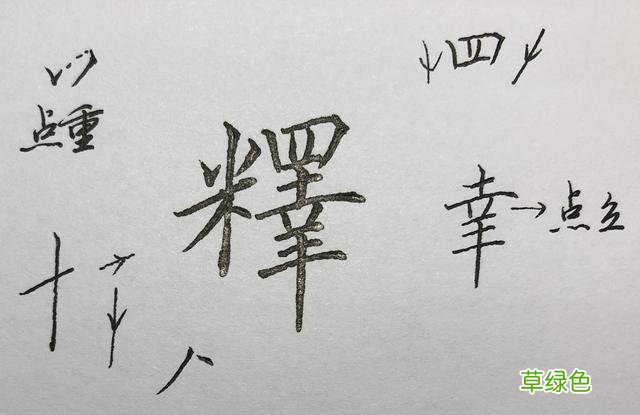 丷
点重
四
釋
幸→点立
十
八
草绿色